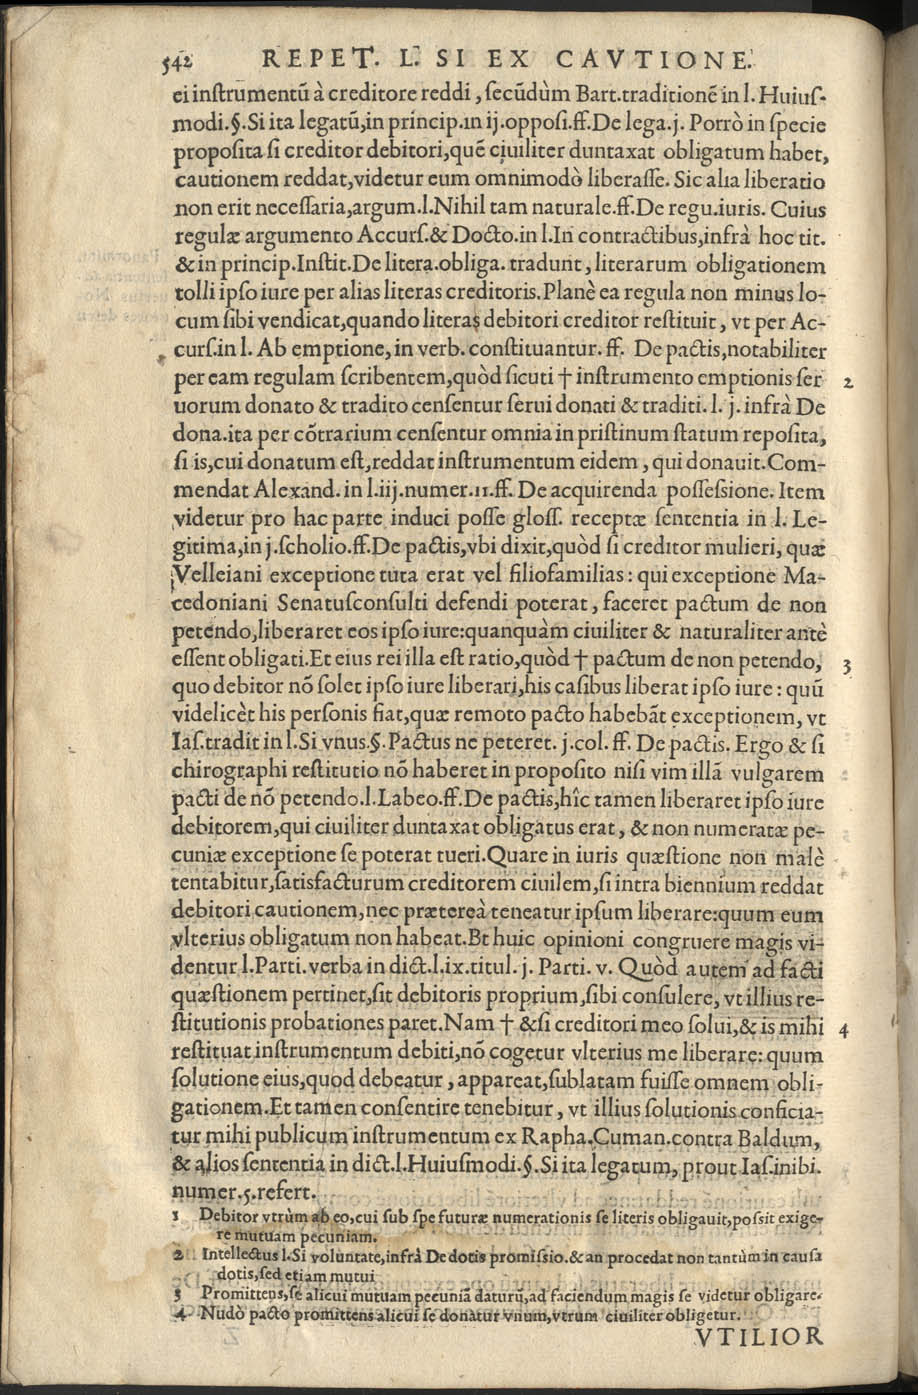 542 REPET. L. SI EX CAVTIONE.
ei instrumentū à creditore reddi, secūdùm Bart.traditionē in l. Huius-
modi.§.Si ita legatū,in princip.in ij.opposi.ff.De lega.j. Porrò in specie
proposita si creditor debitori,quē ciuiliter duntaxat obligatum habet,
cautionem reddat,videtur eum omnimodò liberasse. Sic alia liberatio
non erit necessaria,argum.l.Nihil tam naturale.ff.De regu.iuris. Cuius
regulæ argumento Accurs.& Docto.in l.In contractibus,infrà hoc tit.
& in princip.Instit.De litera.obliga. tradunt, literarum obligationem
tolli ipso iure per alias literas creditoris.Planè ea regula non minus lo-
cum sibi vendicat,quando literas debitori creditor restituit, vt per Ac-
curs.in l. Ab emptione, in verb. constituantur. ff. De pactis,notabiliter
per eam regulam scribentem,quòd sicuti † instrumento emptionis ser 2
uorum donato & tradito censentur serui donati & traditi. l. j. infrà De
dona.ita per cōtrarium censentur omnia in pristinum statum reposita,
si is,cui donatum est,reddat instrumentum eidem, qui donauit.Com-
mendat Alexand. in l.iij.numer.11.ff. De acquirenda possessione. Item
videtur pro hac parte induci posse gloss. receptæ sententia in l. Le-
gitima,in j.scholio.ff.De pactis,vbi dixit,quòd si creditor mulieri, quæ
Velleiani exceptione tuta erat vel filiofamilias: qui exceptione Ma-
cedoniani Senatusconsulti defendi poterat, faceret pactum de non
petendo,liberaret eos ipso iure:quanquàm ciuiliter & naturaliter antè
essent obligati.Et eius rei illa est ratio,quòd † pactum de non petendo, 3
quo debitor nō solet ipso iure liberari,his casibus liberat ipso iure: quū
videlicèt his personis fiat,quæ remoto pacto habebāt exceptionem, vt
Ias.tradit in l.Si vnus.§.Pactus ne peteret. j.col. ff. De pactis. Ergo & si
chirographi restitutio nō haberet in proposito nisi vim illā vulgarem
pacti de nō petendo.l.Labeo.ff.De pactis,hîc tamen liberaret ipso iure
debitorem,qui ciuiliter duntaxat obligatus erat, & non numeratæ pe-
cuniæ exceptione se poterat tueri.Quare in iuris quæstione non malè
tentabitur,satisfacturum creditorem ciuilem,si intra biennium reddat
debitori cautionem,nec prætereà teneatur ipsum liberare:quum eum
vlterius obligatum non habeat.Et huic opinioni congruere magis vi-
dentur l.Parti.verba in dict.l.ix.titul. j. Parti. v. Quòd autem ad facti
quæstionem pertinet,sit debitoris proprium,sibi consulere, vt illius re-
stitutionis probationes paret.Nam † & si creditori meo solui,& is mihi 4
restituat instrumentum debiti,nō cogetur vlterius me liberare: quum
solutione eius,quod debeatur, appareat,sublatam fuisse omnem obli-
gationem.Et tamen consentire tenebitur, vt illius solutionis conficia-
tur mihi publicum instrumentum ex Rapha.Cuman.contra Baldum,
& alios sententia in dict.l.Huiusmodi.§.Si ita legatum, prout Ias.inibi.
numer.5.refert.
1 Debitor vtrùm ab eo,cui sub spe futuræ numerationis se literis obligauit,possit exige-
re mutuam pecuniam.
2 Intellectus l.Si voluntate,infrà De dotis promissio.& an procedat non tantùm in causa
dotis,sed etiam mutui
3 Promittens,se alicui mutuam pecuniā daturū,ad faciendum magis se videtur obligare.
4 Nudò pacto promittens alicui se donatur vnum,vtrum ciuiliter obligetur.
VTILIOR